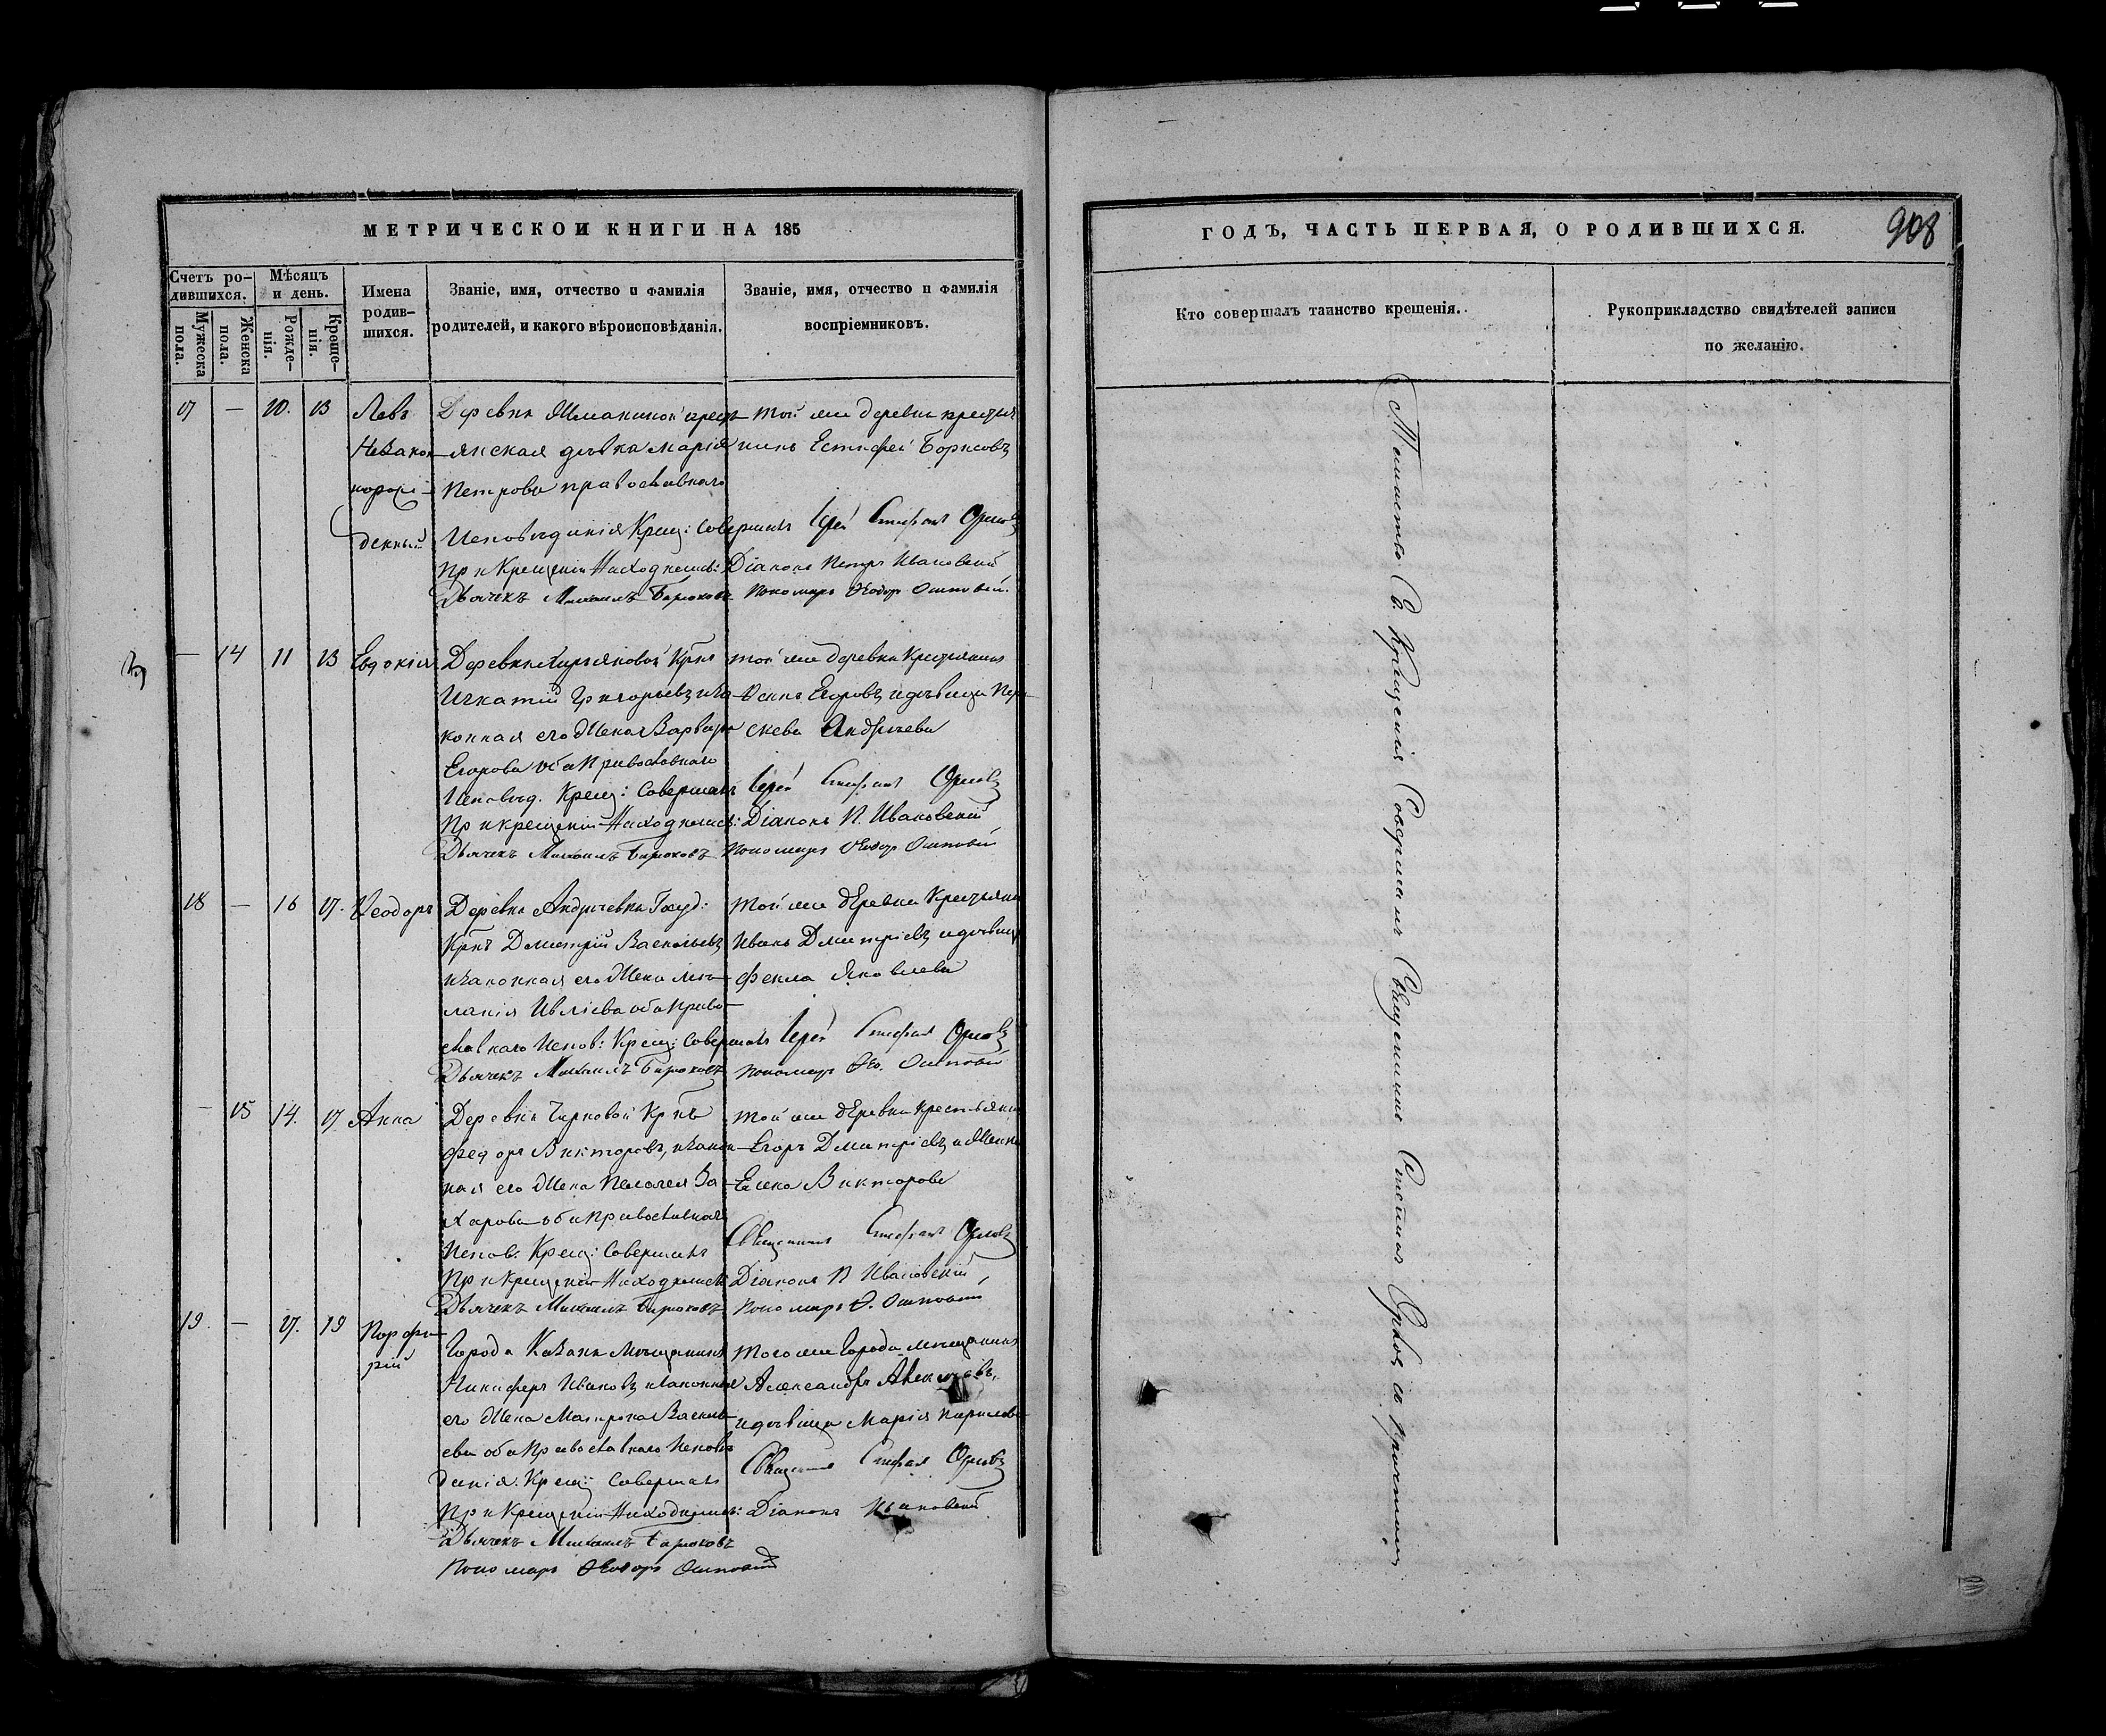 МЕТРИЧЕСКОЙ КНИГИ НА 185
Счетъ ро-
дившихся.
Мужеска
пола.
Женска
пола.
Мѣсяцъ
и день.
Рожде-
нія.
Креще-
нія.
Имена
родив-
шихся.
Званіе, имя, отчество и фамилія
родителей, и какого вѣроисповѣданія.
Званіе, имя, отчество и фамилія
воспріемниковъ.
17 — 10. 13 Левъ
Незакон
норож
денный
Деревни крест
янская дѣвка Марія
Петрова православнаго
Исповѣданія Крещ: Совершалъ
При Крещеніи Находились:
Дьячекъ Михаилъ Бирюковъ
той же деревни крестья
нинъ Естифей Борисовъ
Іерей Стефанъ Орловъ
Діаконъ Петръ Ивановскій
Пономарь Ѳеодоръ
— 14 11 13 Евдокія
Деревни Крнъ
Игнатій Григорьевъ и за
конная его жена Варвара
Егорова оба Православнаго
Исповѣд. Крещ: Совершалъ
При крещеніи Находились:
Дьячекъ Михаилъ Бирюковъ
той же деревни Крестьянинъ
Егоровъ и дѣвица Пара
скева Андреева
Іерей Стефанъ Орловъ
Діаконъ П. Ивановскій
Пономарь Ѳеодоръ
18 — 16 17. Ѳеодоръ
Деревни Андреевки Госуд:
Крнъ Дмитрій Васильевъ
и законная его жена Ме
ланія оба Право
славнаго Испов: Крещ: Совершалъ
Дьячекъ Михаилъ Бирюковъ
той же деревни Крестьянинъ
Иванъ Дмитріевъ и дѣвица
Фекла Яковлева
Іерей Стефанъ Орловъ
Пономарь Ѳео.
— 15 14. 17 Анна
Деревни Чирковой Крнъ
Федоръ Викторовъ, и закон
ная его жена Пелагея За
харова оба Православнаго
Испов. Крещ: Совершалъ
При Крещеніи Находились
Дьячекъ Михаилъ Бирюковъ
той же деревни крестьянинъ
Егоръ Дмитріевъ и жена
Елена Викторова
Священникъ Стефанъ Орловъ
Діаконъ П Ивановскій,
Пономарь Ѳ.
19. — 17. 19 Порфи-
рій
Города Казани Мѣщанинъ
Никифоръ Ивановъ и законная
его жена Матрона Василь
ева оба Православнаго Исповѣ
данія. Крещ: Совершалъ
При Крещеніи Находились:
Дьячекъ Михаилъ Бирюковъ
Пономарь Ѳеодоръ
того же Города мѣщанинъ
Александръ
и дѣвица Марія
Священникъ Стефанъ Орловъ
Діаконъ Ивановскій
ГОДЪ, ЧАСТЬ ПЕРВАЯ, О РОДИВШИХСЯ.
908
Кто совершалъ таинство крещенія.
Рукоприкладство свидѣтелей записи
по желанію.
Таинство С. Крещенія Совершалъ Священникъ Стефанъ Орловъ съ причтомъ